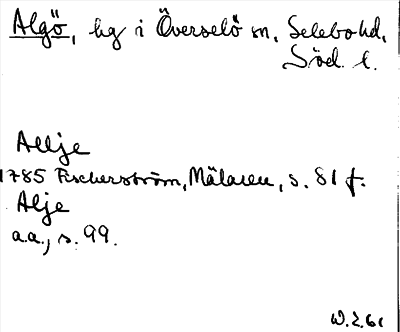 Algö, hg i Överselö sn, Selebo hd,
Söd. l.
Allje
1785 Fischerström, Mälaren, s. 81 f.
Alje
a.a., s. 99.
W.Z. 61